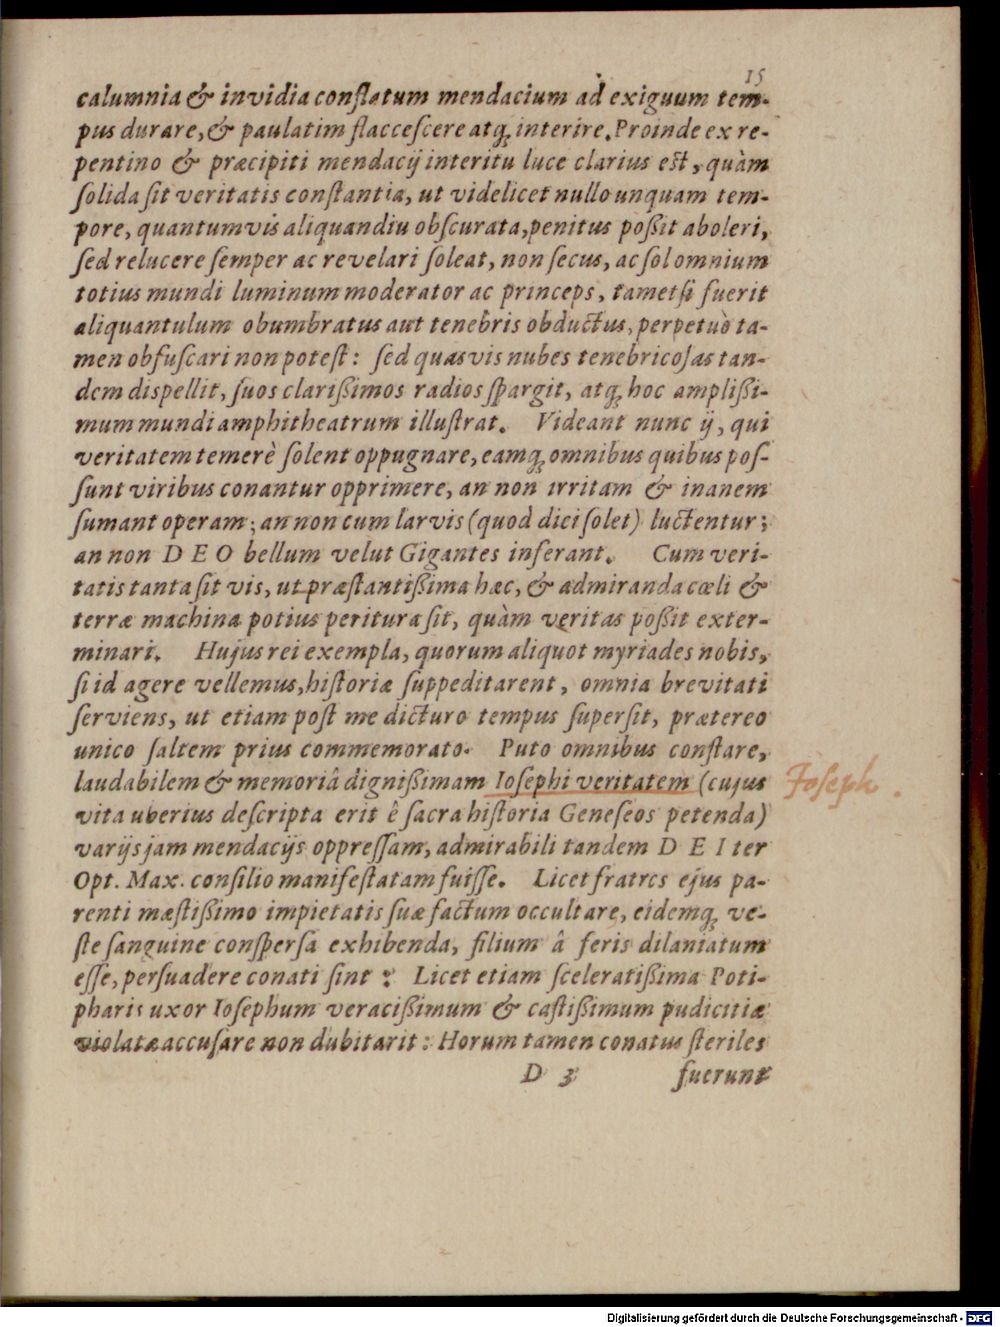 15
calumnia & invidia conflatum mendacium ad exiguum tem-
pus durare, & paulatim flaccescere atq; interire. Proinde ex re-
pentino & præcipiti mendacij interitu luce clarius est, quàm
solida sit veritatis constantia, ut videlicet nullo unquam tem-
pore, quantumvis aliquandiu obscurata, penitus poßit aboleri,
sed relucere semper ac revelari soleat, non secus, ac sol omnium
totius mundi luminum moderator ac princeps, tametsi fuerit
aliquantulum obumbratus aut tenebris obductus, perpetuò ta-
men obfuscari non potest: sed quasvis nubes tenebricosas tan-
dem dispellit, suos clarißimos radios spargit, atq; hoc amplißi-
mum mundi amphitheatrum illustrat. Videant nunc ij, qui
veritatem temerè solent oppugnare, eamq; omnibus quibus pos-
sunt viribus conantur opprimere, an non irritam & inanem
sumant operam; an non cum larvis (quod dici solet) luctentur;
an non DEO bellum velut Gigantes inferant. Cum veri-
tatis tanta sit vis, ut præstantißima hæc, & admiranda cœli &
terræ machina potius peritura sit, quàm veritas poßit exter-
minari. Hujus rei exempla, quorum aliquot myriades nobis,
si id agere vellemus, historiæ suppeditarent, omnia brevitati
serviens, ut etiam post me dicturo tempus supersit, prætereo
unico saltem prius commemorato. Puto omnibus constare,
laudabilem & memoriâ dignißimam Iosephi veritatem (cujus
vita uberius descripta erit ê sacra historia Geneseos petenda)
varijs jam mendacijs oppressam, admirabili tandem DEI ter
Opt. Max. consilio manifestatam fuisse. Licet fratres ejus pa-
renti mæstißimo impietatis suæ factum occultare, eidemq; ve-
ste sanguine conspersa exhibenda, filium â feris dilaniatum
esse, persuadere conati sint: Licet etiam sceleratißima Poti-
pharis uxor Iosephum veracißimum & castißimum pudicitiæ
violatæ accusare non dubitarit: Horum tamen conatus steriles
D 3 fuerunt
Joseph.
Digitalisierung gefördert durch die Deutsche Forschungsgemeinschaft - DFG